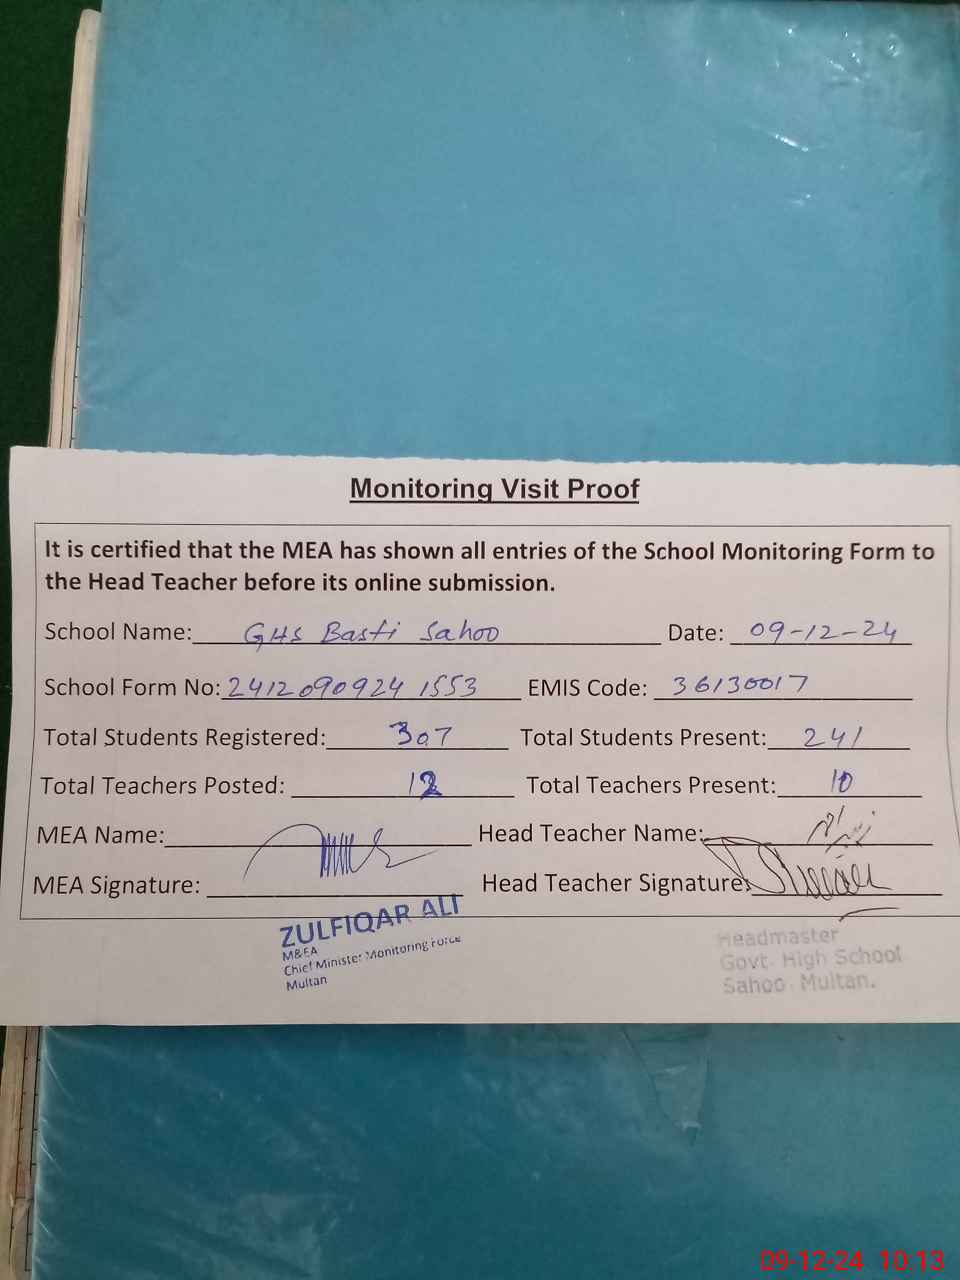 Monitoring Visit Proof
It is certified that the MEA has shown all entries of the School Monitoring Form to
the Head Teacher before its online submission.
School Name: GHS Basti Sahoo Date: 09-12-24
School Form No: 2412090924 1553 EMIS Code: 36130017
Total Students Registered: 307 Total Students Present: 241
Total Teachers Posted: 12 Total Teachers Present: 10
MEA Name: Head Teacher Name:
MEA Signature: Head Teacher Signature:
ZULFIQAR ALI
M&EA
Chief Minister Monitoring Force
Multan
Headmaster
Govt. High School
Sahoo Multan.
09-12-24 10:13